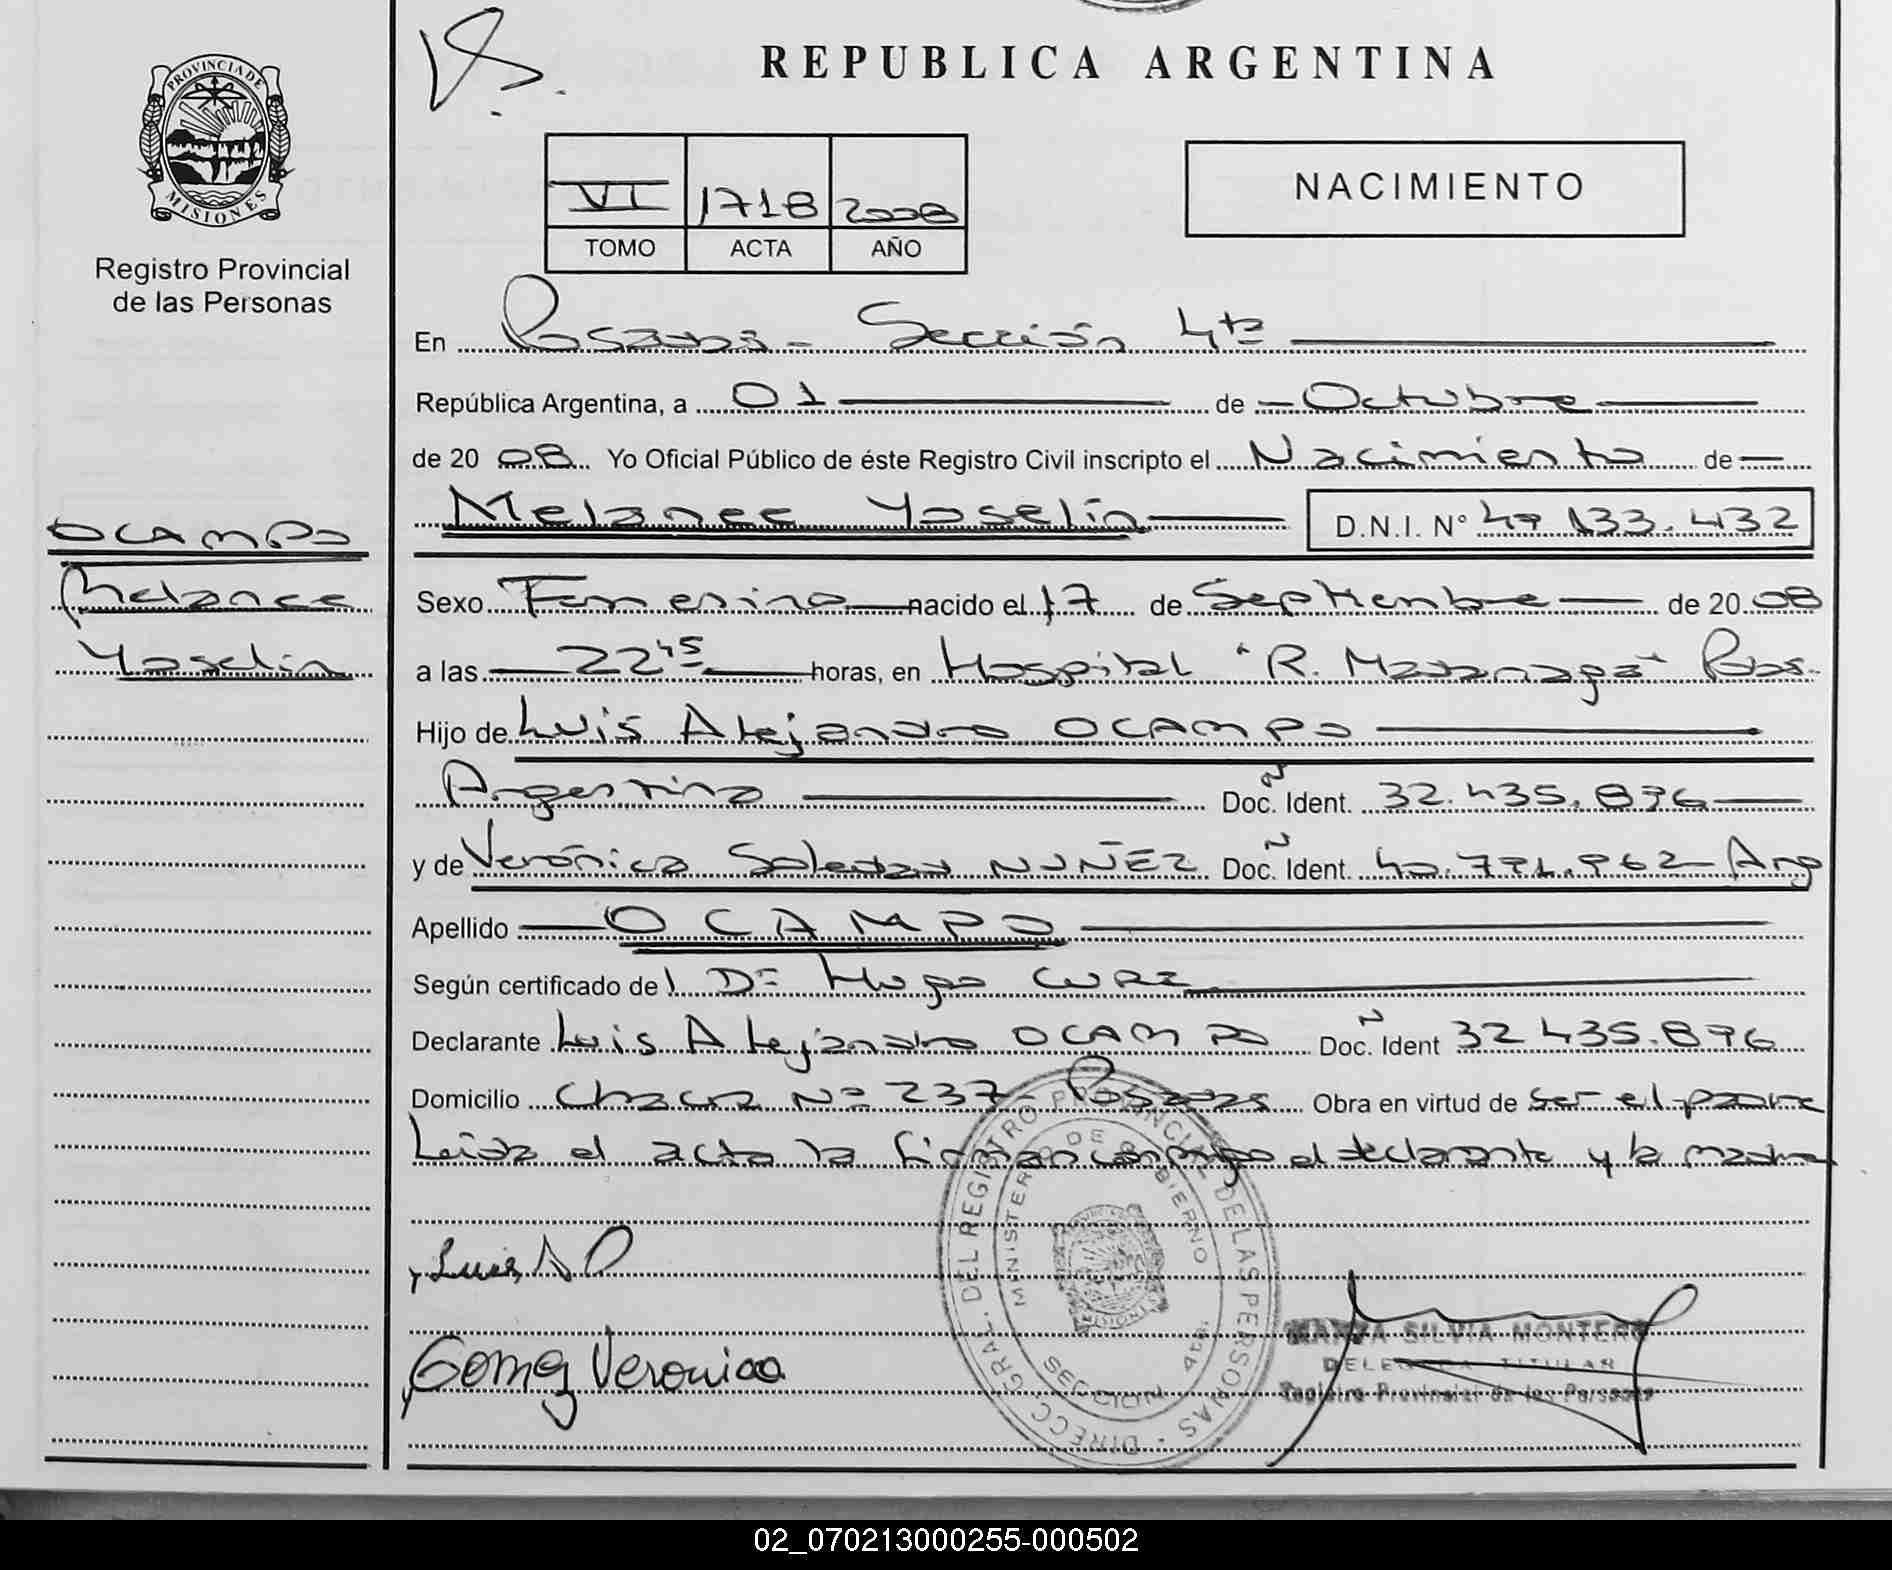 REPUBLICA ARGENTINA
PROVINCIA DE
MISIONES
Registro Provincial
de las Personas
NACIMIENTO
VI 1718 2008
TOMO ACTA AÑO
En Posadas - Sección 4ta
República Argentina, a 01 de Octubre
de 20 08 Yo Oficial Público de éste Registro Civil inscripto el Nacimiento de
Melanee Yoselín D.N.I. N° 49.133.432
OCAMPO
Melanee
Yoselín
Sexo Femenino nacido el 17 de Septiembre de 20 08
a las 22 45 horas, en Hospital "R. Madariaga" Pdas.
Hijo de Luis Alejandro OCAMPO
Argentino Doc. Ident. 32.435.896
y de Verónica Soledad NUÑEZ Doc. Ident. 40.791.962 Arg
Apellido OCAMPO
Según certificado del Dr Hugo
Declarante Luis Alejandro OCAMPO Doc. Ident 32 435.896
Domicilio Chacra Nº 237 - Posadas Obra en virtud de ser el padre
Leida el acta la firman conmigo el declarante y la madre
Luis A O
Gomez Veronica
DIRECC. GRAL. DEL REGISTRO PROVINCIAL DE LAS PERSONAS
MINISTERIO DE GOBIERNO
MISIONES
SECCION 4ta.
SILVIA MONTERO
DELEGADA TITULAR
Registro Provincial de las Personas
02_070213000255-000502